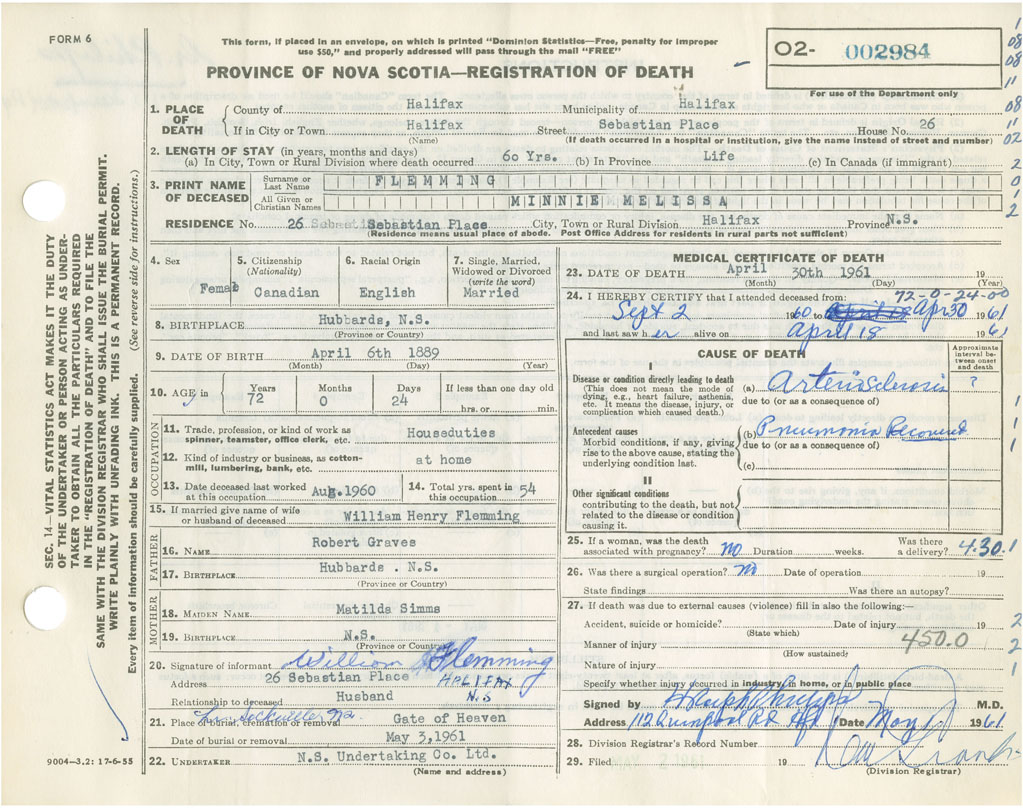 FORM 6
This form, if placed in an envelope, on which is printed "Dominion Statistics—Free, penalty for improper
use $50," and properly addressed will pass through the mail "FREE"
PROVINCE OF NOVA SCOTIA—REGISTRATION OF DEATH
02- 002984
For use of the Department only
1. PLACE OF DEATH { County of Halifax Municipality of Halifax
If in City or Town Halifax Street Sebastian Place House No. 26
(Name) (If death occurred in a hospital or institution, give the name instead of street and number)
2. LENGTH OF STAY (in years, months and days)
(a) In City, Town or Rural Division where death occurred 60 Yrs. (b) In Province Life (c) In Canada (if immigrant)
3. PRINT NAME OF DECEASED { Surname or Last Name FLEMMING
All Given or Christian Names MINNIE MELISSA
RESIDENCE No. 26 Sebastian Place City, Town or Rural Division Halifax Province N.S.
(Residence means usual place of abode. Post Office Address for residents in rural parts not sufficient)
4. Sex Femab
5. Citizenship (Nationality) Canadian
6. Racial Origin English
7. Single, Married, Widowed or Divorced (write the word) Married
8. BIRTHPLACE Hubbards, N.S.
(Province or Country)
9. DATE OF BIRTH April 6th 1889
(Month) (Day) (Year)
10. AGE in Years 72 Months 0 Days 24 If less than one day old hrs. or min.
OCCUPATION
11. Trade, profession, or kind of work as spinner, teamster, office clerk, etc. Houseduties
12. Kind of industry or business, as cotton-mill, lumbering, bank, etc. at home
13. Date deceased last worked at this occupation Aug.1960
14. Total yrs. spent in this occupation 54
15. If married give name of wife or husband of deceased William Henry Flemming
FATHER
16. NAME Robert Graves
17. BIRTHPLACE Hubbards . N.S.
(Province or Country)
MOTHER
18. MAIDEN NAME Matilda Simms
19. BIRTHPLACE N.S.
(Province or Country)
20. Signature of informant William Flemming
Address 26 Sebastian Place HALIFAX
Relationship to deceased Husband N.S
21. Place of burial, cremation or removal Gate of Heaven
Date of burial or removal May 3,1961
22. UNDERTAKER N.S. Undertaking Co. Ltd.
(Name and address)
MEDICAL CERTIFICATE OF DEATH
23. DATE OF DEATH April 30th 1961 19
(Month) (Day) (Year)
72-0-24-00
24. I HEREBY CERTIFY that I attended deceased from:
Sept 2 1960 to Apr 30 1961
and last saw her alive on April 18 1961
CAUSE OF DEATH
Approximate interval between onset and death
I
Disease or condition directly leading to death
(This does not mean the mode of dying, e.g., heart failure, asthenia, etc. It means the disease, injury, or complication which caused death.)
(a) Arteriosclerosis ?
due to (or as a consequence of)
Antecedent causes
Morbid conditions, if any, giving rise to the above cause, stating the underlying condition last.
(b) Pneumonia Recovered
due to (or as a consequence of)
(c)
II
Other significant conditions
contributing to the death, but not related to the disease or condition causing it.
25. If a woman, was the death associated with pregnancy? No Duration weeks. Was there a delivery? 4.30.1
26. Was there a surgical operation? No Date of operation 19
State findings Was there an autopsy?
27. If death was due to external causes (violence) fill in also the following:—
Accident, suicide or homicide? Date of injury 19
(State which)
Manner of injury 450.0
(How sustained)
Nature of injury
Specify whether injury occurred in industry, in home, or in public place
Signed by M.D.
Address 112 Quinpool Rd Date May 1 1961
28. Division Registrar's Record Number
29. Filed MAY 2 1961 19
(Division Registrar)
SEC. 14—VITAL STATISTICS ACT MAKES IT THE DUTY
OF THE UNDERTAKER OR PERSON ACTING AS UNDER-
TAKER TO OBTAIN ALL THE PARTICULARS REQUIRED
IN THE "REGISTRATION OF DEATH" AND TO FILE THE
SAME WITH THE DIVISION REGISTRAR WHO SHALL ISSUE THE BURIAL PERMIT.
WRITE PLAINLY WITH UNFADING INK. THIS IS A PERMANENT RECORD.
Every item of information should be carefully supplied. (See reverse side for instructions.)
9004—3.2: 17-6-55